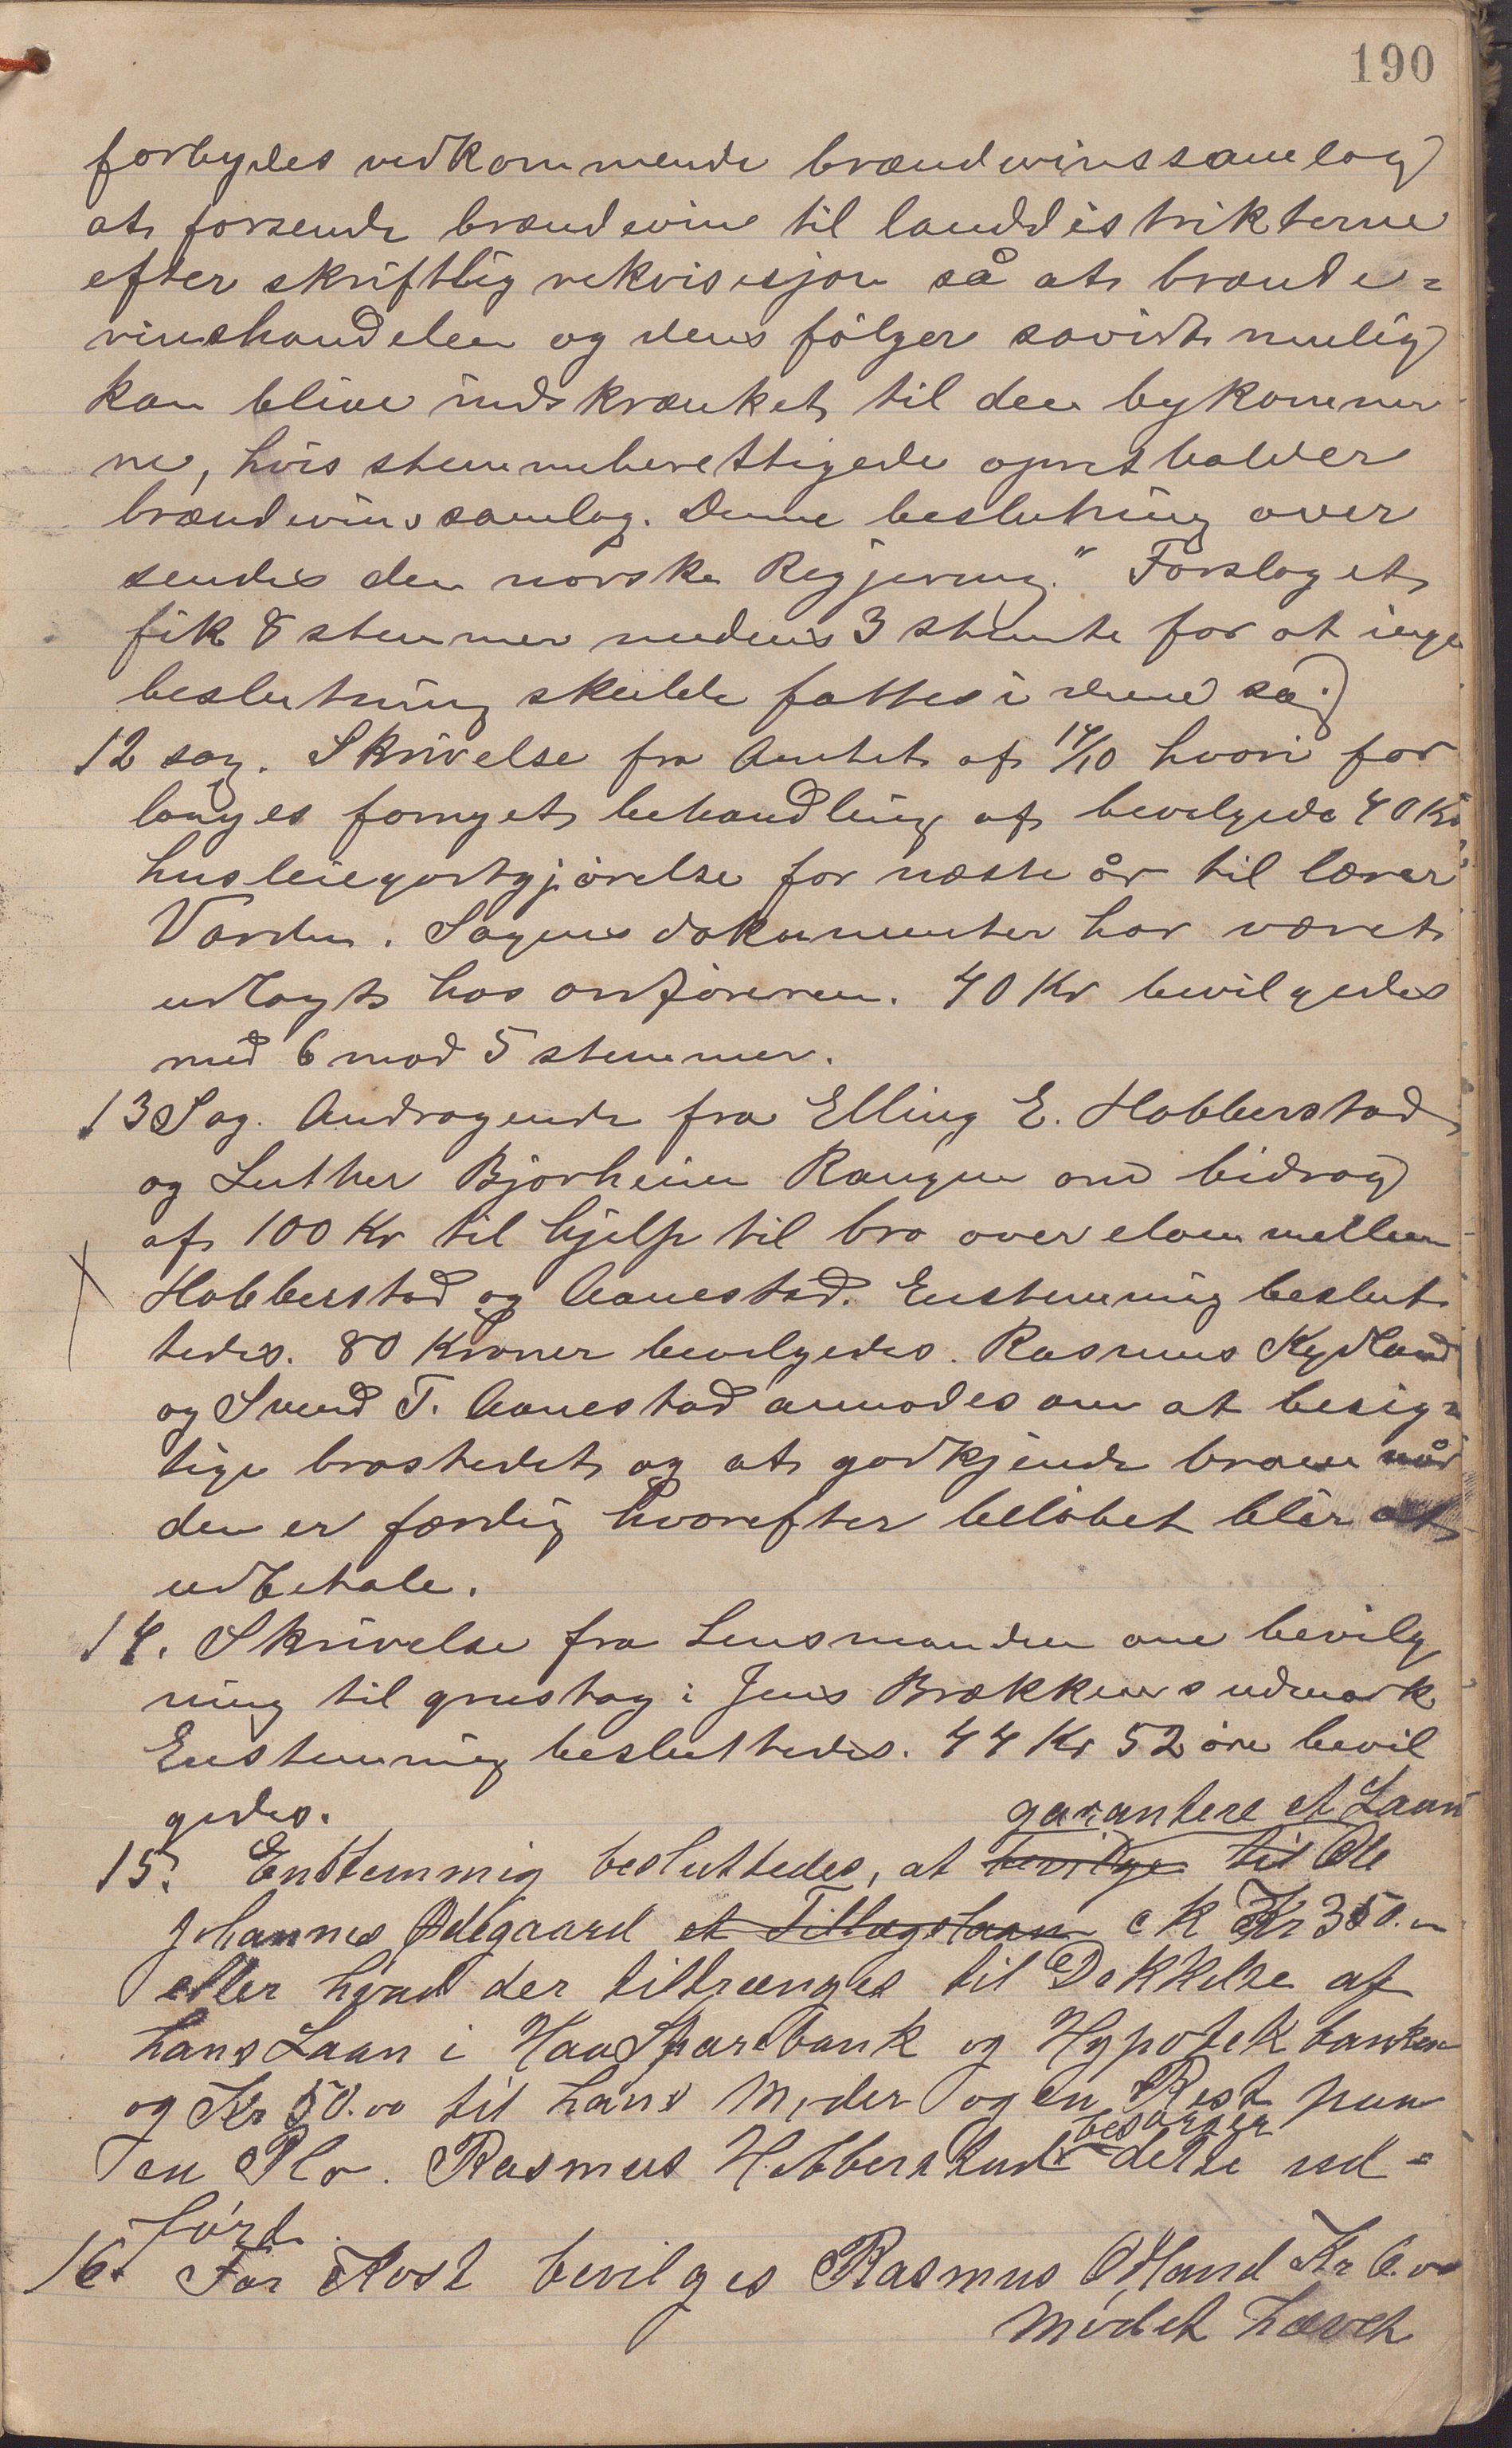 190
forbydes vedkommende brændevinssamlag
at forsende brændevin til landdistrikterne
efter skriftlig rekvisisjon så at brænde-
vinshandelen og dens følger såvidt mulig
kan blive indskrænket til den bykommu-
ne, hvis stemmeberettigede opretholder
brændevinssamlag. Denne beslutning over
sendes den norske Regjering." Forslaget
fik 8 stemmer medens 3 stemte for at ingen
beslutning skulde fattes i denne sag.
12 sag. Skrivelse fra Amtet af 14/10 hvori for
langes fornyet behandling af bevilgede 40 Kr
husleiegodtgjørelse for næste år til lærer
Varden. Sagens dokumenter har været
udlagt hos ordføreren. 40 Kr bevilgedes
med 6 mod 5 stemmer.
13 Sag. Andragende fra Elling E. Hobberstad
og Luther Bjorheim Rangen om bidrag
af 100 Kr til hjelp til bro over elven mellem
Hobberstad og Aanestad. Enstemmig beslut
tedes. 80 Kroner bevilgedes. Rasmus Kydland
og Svend T. Aanestad anmodes om at besig-
tige brostedet og at godkjende broen når
den er færdig hvorefter beløbet blir at
udbetale.
14. Skrivelse fra Lensmanden om bevilg
ning til grustag i Jens Brækkens udmark
Enstemmig besluttedes. 44 Kr 52 øre bevil
gedes.
garantere et Laan
15. Enstemmig besluttedes, at bevilge til Ole
Johannes Ødegaard et Tillægslaan Kr 350.
eller hvad der tiltrænges til Dækkelse af
hans Laan i Haa Sparebank og Hypotekbanken
og Kr 50.00 til hans Moder og en Rest paa
en Plo. Rasmus Hobberstad besørger dette ud-
ført.
16. For Kost bevilges Rasmus Odland Kr 6.00
Mødet hævet